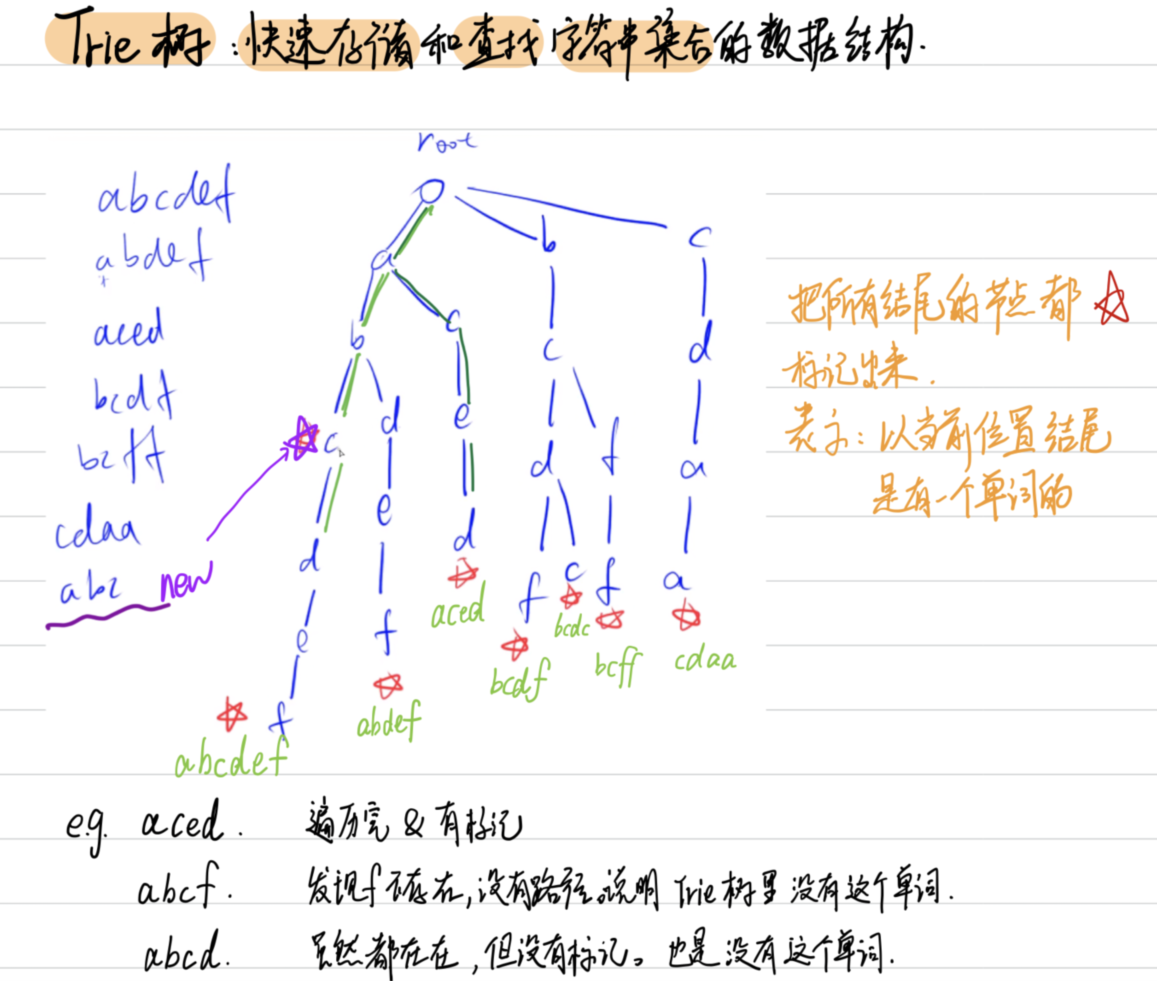 Trie 树：快速存储和查找字符串集合的数据结构.
root
abcdef
abdef
aced
bcdf
bcff
cdaa
abc new
a b c
b c c d
c d e d f a
d e d f c f a
e f
f
aced
bcdc
bcdf
bcff
cdaa
abdef
abcdef
把所有结尾的节点都☆
标记出来.
表示：以当前位置结尾
是有一个单词的
e.g. aced. 遍历完 & 有标记
abcf. 发现f不存在,没有路径。说明 Trie 树里没有这个单词.
abcd. 虽然都在在,但没有标记。也是没有这个单词.